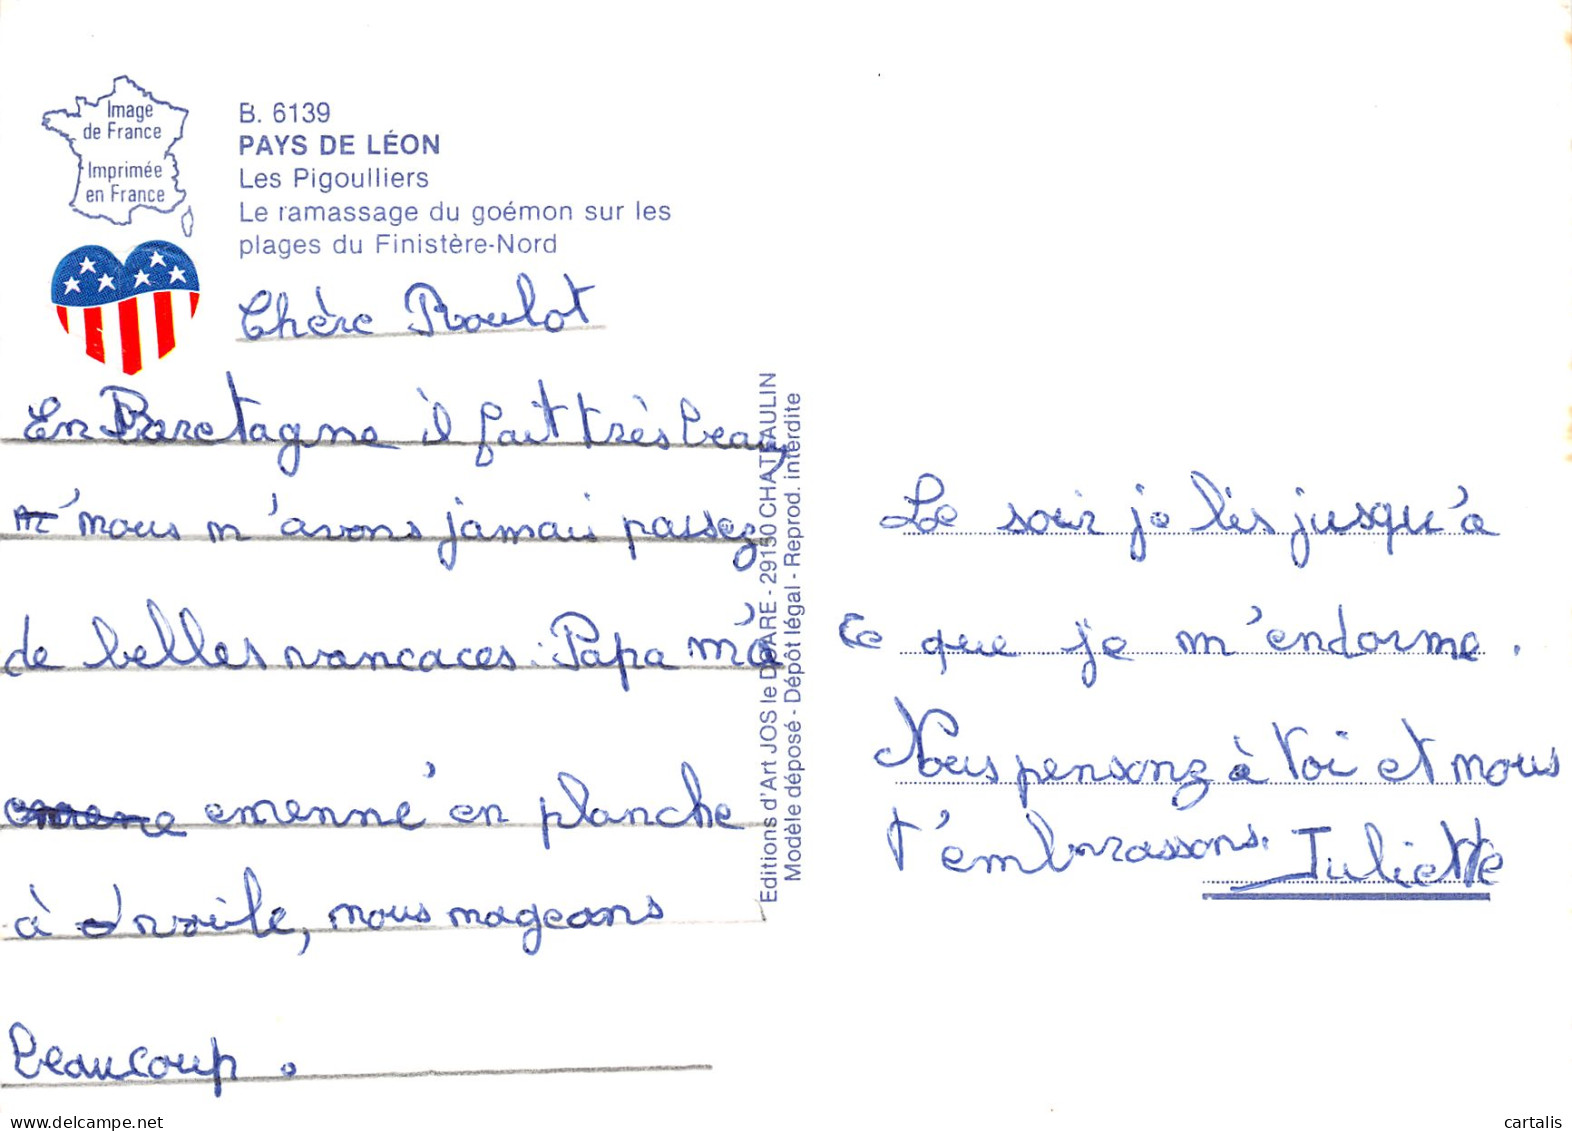 Image
de France
Imprimée
en France
B. 6139
PAYS DE LÉON
Les Pigoulliers
Le ramassage du goémon sur les
plages du Finistère-Nord
Chère Roulot
En Baretagne il fait très beau,
nous n'avons jamais passez
de belles vancaces. Papa m'a
emenné en planche
à voile, nous nageons
beaucoup.
Editions d'Art JOS le DOARE - 29150 CHATEAULIN
Modèle déposé - Dépôt légal - Reprod. interdite
Le soir je lis jusqu'a
ce que je m'endorme.
Nous pensonz à toi et nous
t'embrassons.
Juliette
cartalis
delcampe.net